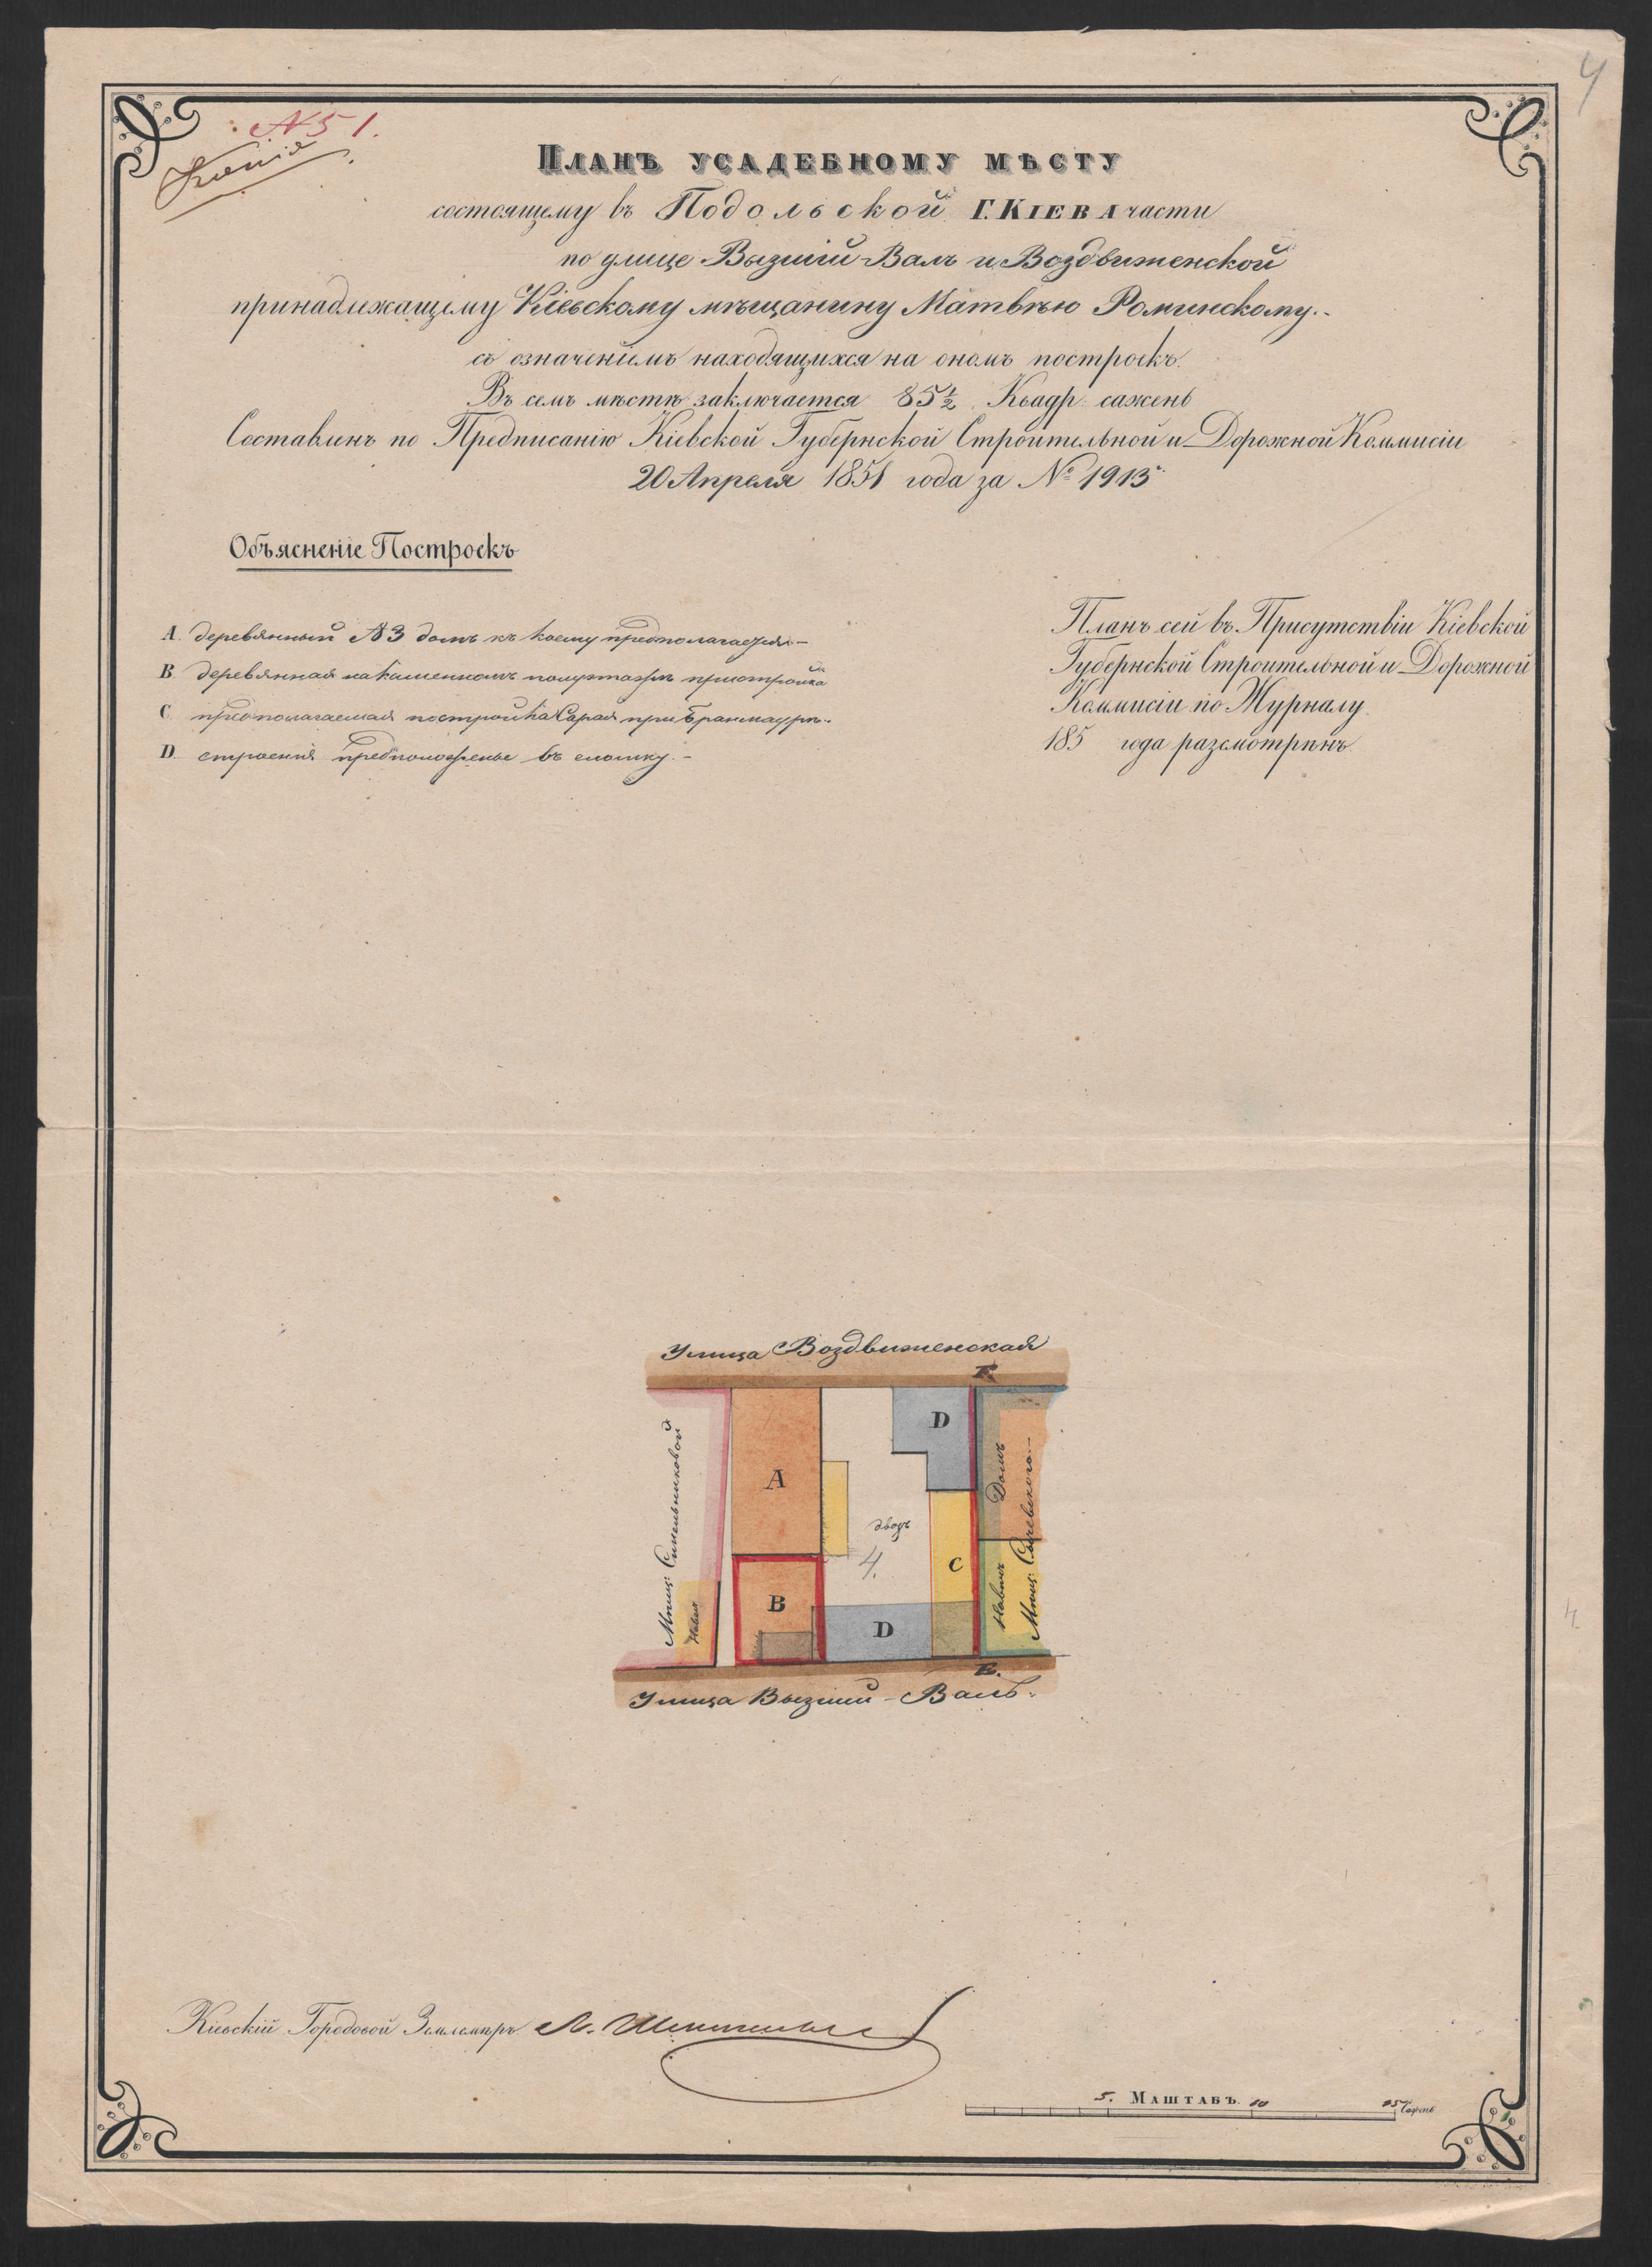 4
№ 51.
Копія
Планъ усадебному мѣсту
состоящему въ Подольской Г. Кіева части
по улице Вызшій-Валъ и Воздвиженской
принадлежащему Кіевскому мѣщанину Матвѣю Роминскому.
съ означеніемъ находящихся на ономъ построекъ.
Въ семъ мѣстѣ заключается 85½ Квадр. сажень
Составленъ по Предписанію Кіевской Губернской Строительной и Дорожной Коммисіи
20 Апреля 1851 года за № 1913
Объясненіе Построекъ
А. деревянный № 3 домъ къ коему предполагается
В. деревянная на каменномъ полуэтажѣ пристройка
С. предполагаемая постройка Сарая при Бранмаурѣ.
D. строенія предположенные въ сломку.
Планъ сей въ Присутствіи Кіевской
Губернской Строительной и Дорожной
Коммисіи по Журналу
185 года разсмотрѣнъ.
Улица Воздвиженская
А
D
дворъ
4.
С
В
D
Мѣщ: Синельниковой
Навѣсъ
Домъ
Навѣсъ
Мѣщ:
Улица Вызшій-Валъ.
Кіевскій Городовой Землемѣръ
5. Маштабъ. 10 15 Сажень